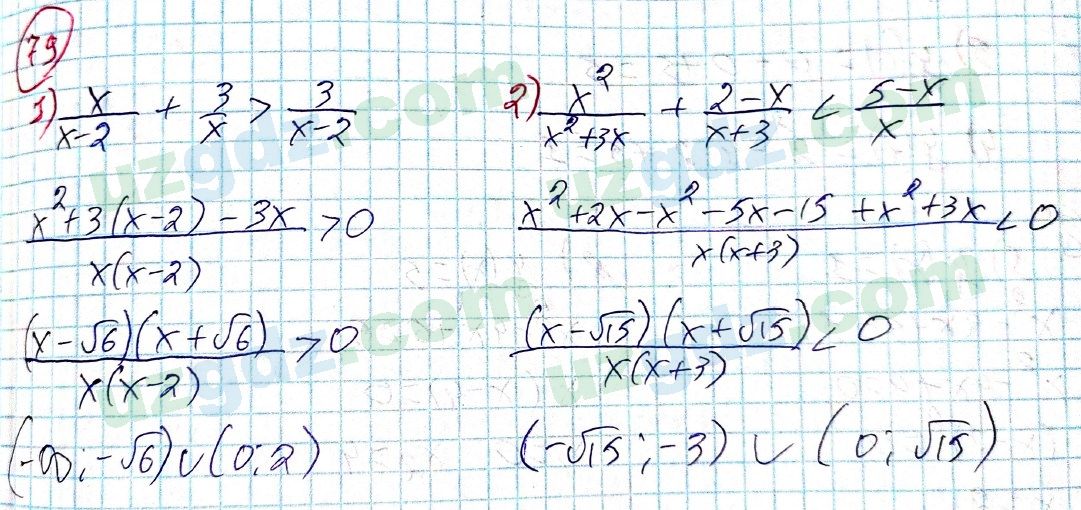 79
1) x/(x-2) + 3/x > 3/(x-2)
(x²+3(x-2)-3x)/(x(x-2)) > 0
((x-√6)(x+√6))/(x(x-2)) > 0
(-∞; -√6) ∪ (0; 2)
2) x²/(x²+3x) + (2-x)/(x+3) < (5-x)/x
(x²+2x-x²-5x-15+x²+3x)/(x(x+3)) < 0
((x-√15)(x+√15))/(x(x+3)) < 0
(-√15; -3) ∪ (0; √15)
uzgdz.com
uzgdz.com
uzgdz.com
uzgdz.com